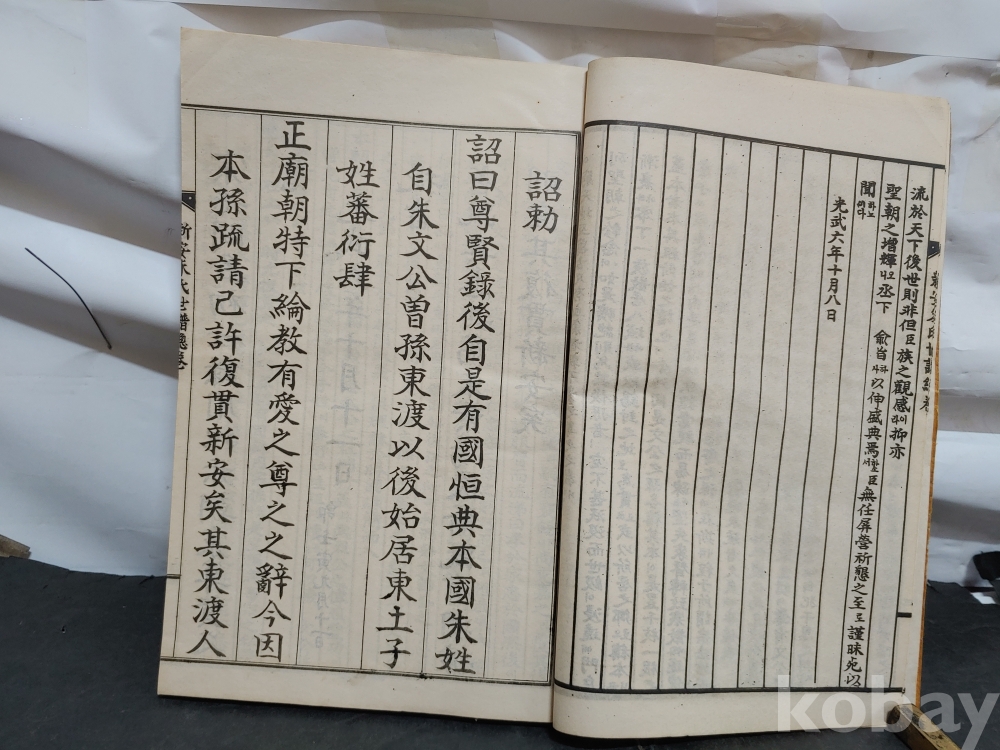 流於天下後世則非但臣族之觀感라이抑亦
聖朝之增輝니르丞下 兪音하사以伸盛典焉서臣無任屛營祈懇之至로謹昧死以
聞하노이다
光武六年十月八日
詔勅
詔曰尊賢錄後自是有國恒典本國朱姓
自朱文公曾孫東渡以後始居東土子
姓蕃衍肆
正廟朝特下綸教有愛之尊之之辭今因
本孫疏請已許復貫新安矣其東渡人
新安朱氏世譜總卷
kobay